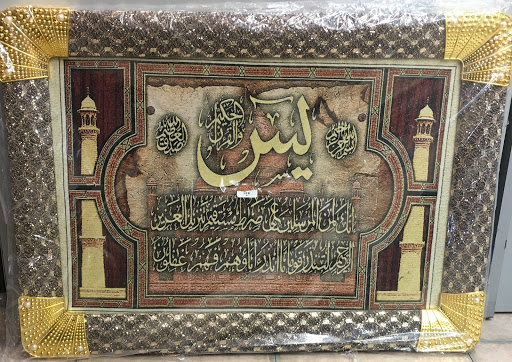 يس
والقرآن الحكيم
صدق الله العظيم
إنك لمن المرسلين على صراط مستقيم تنزيل العزيز
الرحيم لتنذر قوما ما أنذر آباؤهم فهم غافلون